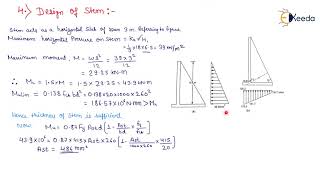 4.) Design of Stem:-
Ekeeda
Stem acts as a horizontal slab of span 3m. Referring to figure
Maximum horizontal Pressure on stem = Ka γ H1
= 1/3 × 18 × 6.5 = 39 kN/m²
Maximum moment, M = wl²/12 = 39×3²/12
= 29.25 kN-m
∴ Mu = 1.5×M = 1.5×29.25 = 43.9 kN-m
Mulim = 0.138 fck bd² = 0.138×20×1000×260²
= 186.57×10⁶ N-mm > Mu
Hence thickness of stem is sufficient
Now Mu = 0.87 fy Ast d [1 - Ast/bd × fy/fck]
43.9×10⁶ = 0.87×415×Ast×260 [1 - Ast/1000×260 × 415/20]
Ast = 486 mm²
(a)
(b)